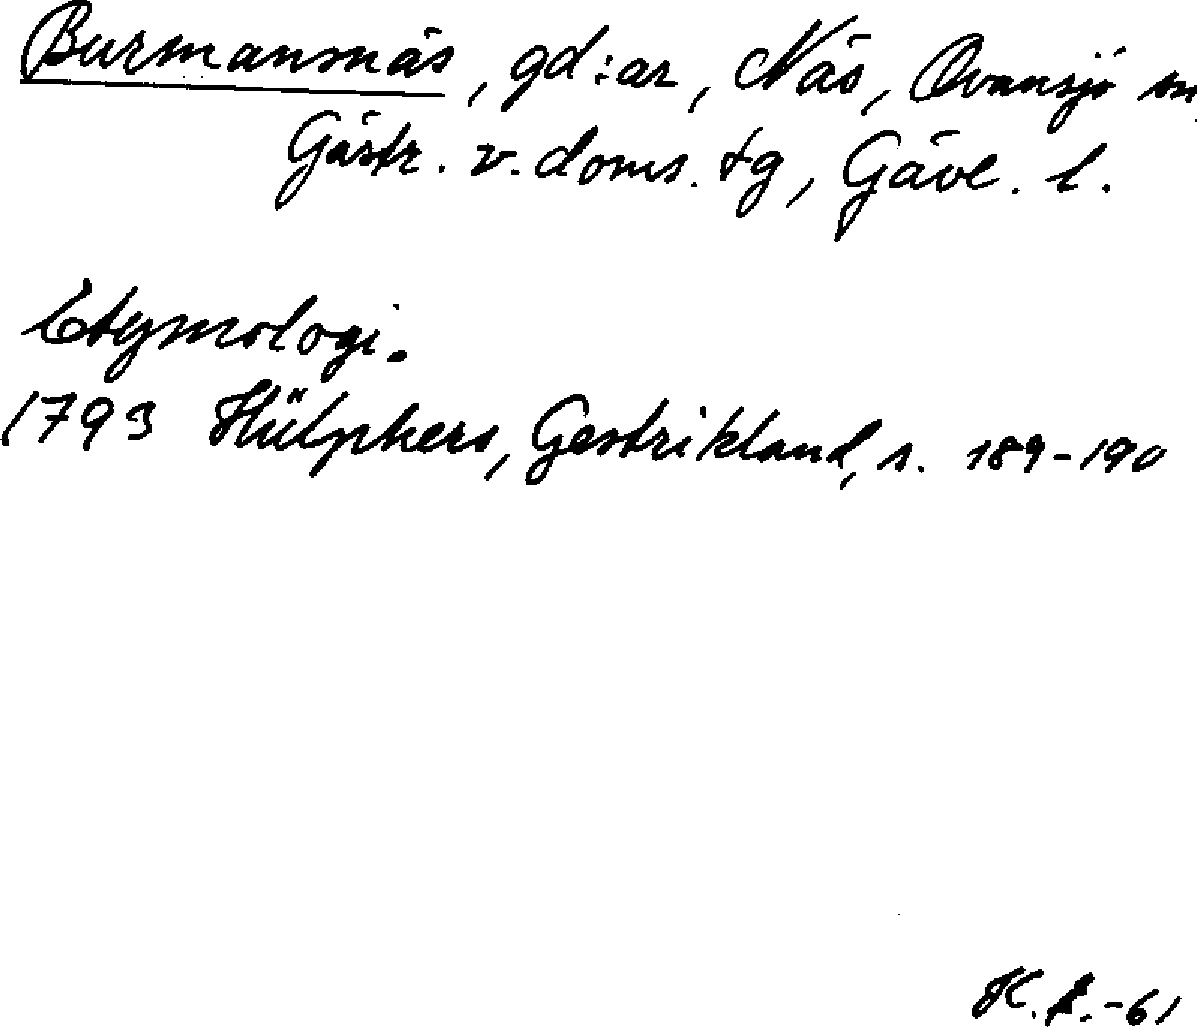 Burmansnäs, gd:ar, Näs, Ovansjö sn,
Gästr. v. doms. tg, Gävl. l.
Etymologi.
1793 Hülphers, Gestrikland, s. 189-190
-61